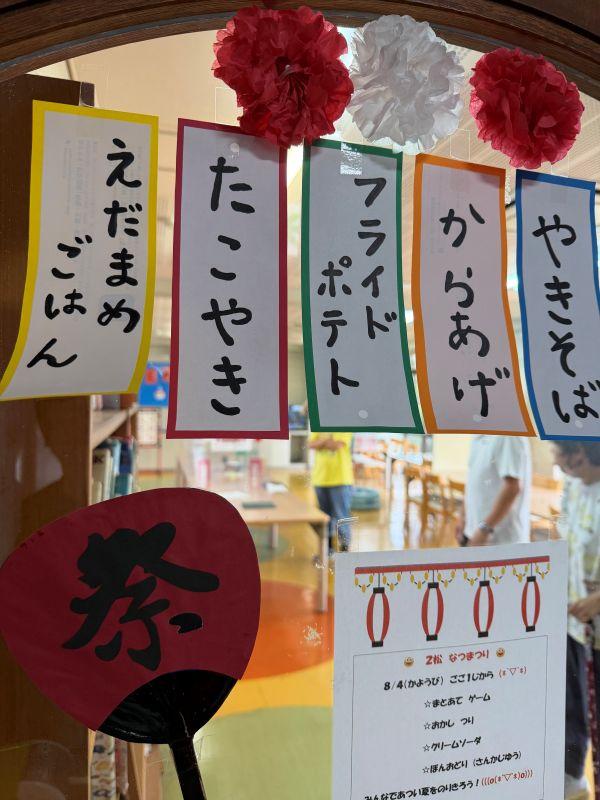 やきそば
からあげ
フライド
ポテト
たこやき
えだまめ
ごはん
祭
2松 なつまつり
8/4(かようび) ごご1じから (*´▽`*)
☆まとあて ゲーム
☆おかし つり
☆クリームソーダ
☆ぼんおどり (さんかじゆう)
みんなであつい夏をのりきろう!(((o(*ﾟ▽ﾟ*)o)))